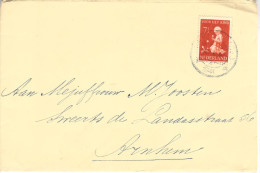 NEDERLAND
Aan Mejuffrouw M. Joosten
Sweerts de Landasstraat
Arnhem